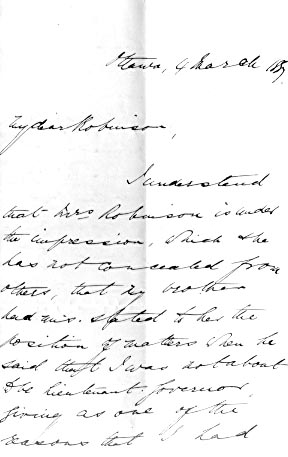 Ottawa, 4 March 1887
My dear Robinson,
I understand
that Mrs Robinson is under
the impression, which she
has not concealed from
others, that my brother
had mis-stated to her the
position of matters when he
said that I was not about
to be lieutenant-governor,
giving as one of the
reasons that I had